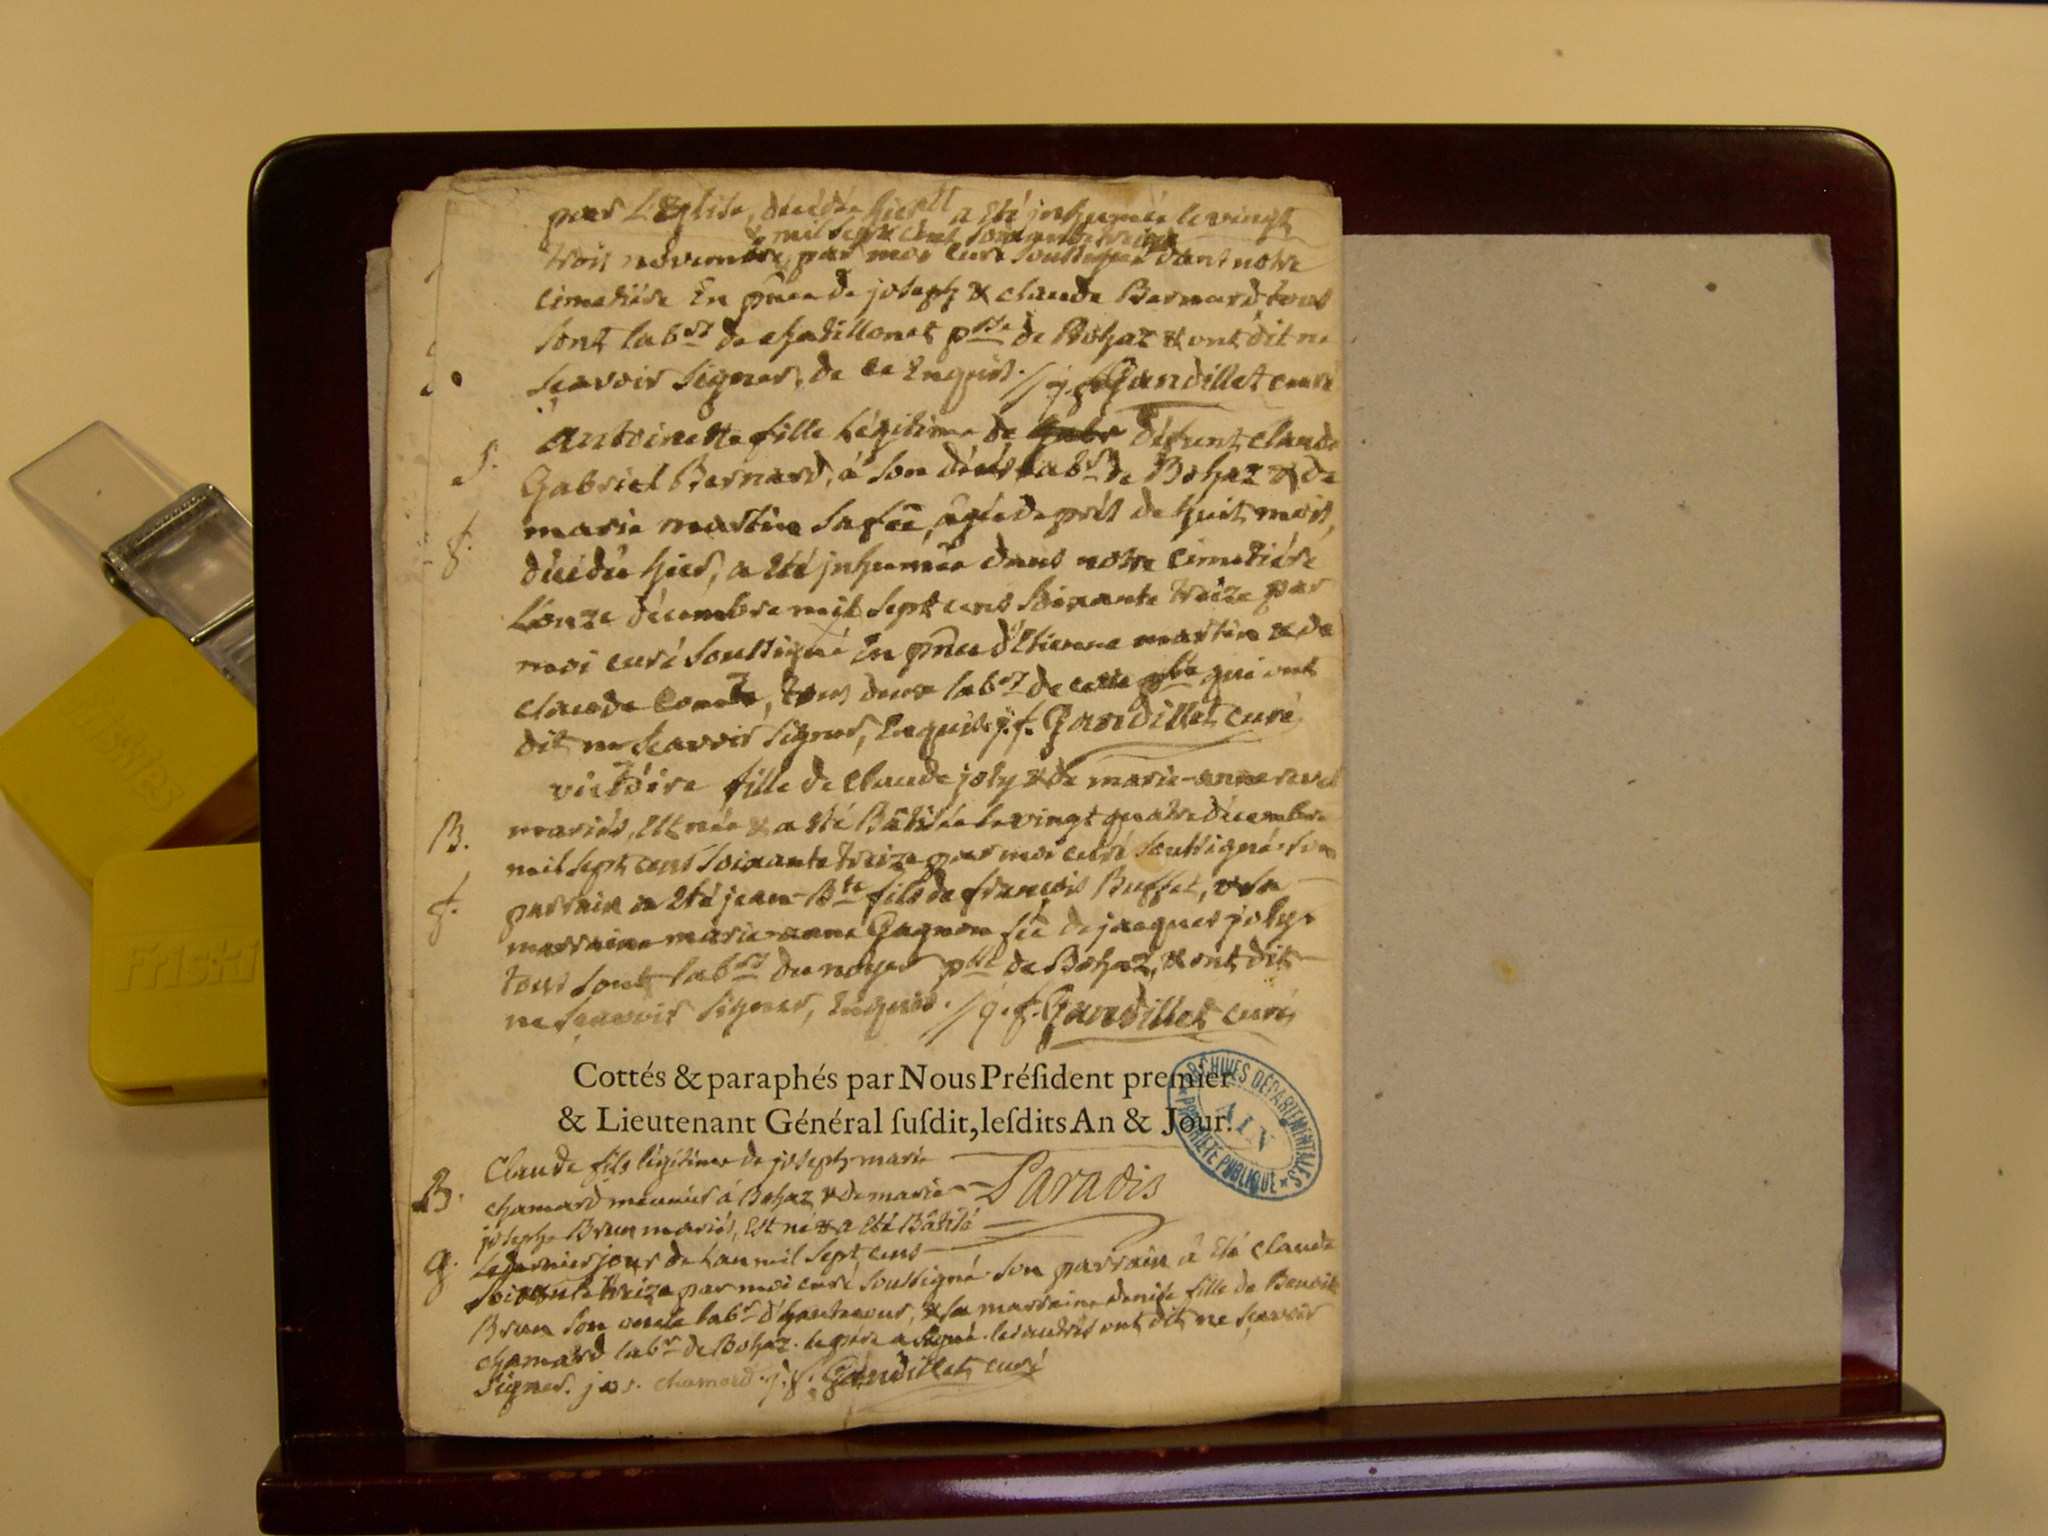 par l'Eglise, décédée hier a Eté inhumée le vingt
& mil sept cent soixante treize
trois novembre, par moi curé soussigné dans notre
cimetiére En pñce de joseph & claude Bernard, tous
sont labrs de chatillonet psse de Bohaz & ont dit ne
sçavoir signer, de ce Enquis. / j. f. Gandillet curé
antoinette fille Légitime de défunt claude
S.
Gabriel Bernard, á son décés labr de Bohaz & de
marie martin sa fee, agée de prés de huit mois,
f.
décédée hier, a Eté inhumée dans notre cimetiére
L'onze décembre mil sept cens soixante treize par
moi curé soussigné En pñce d'Etienne martin & de
claude, tous deux labrs de cette psse qui ont
dit ne sçavoir signer, Enquis. j. f. Gandillet curé
victoire fille de claude joly & de marie-anne revel
B.
mariés, Est née & a eté Bâtisée le vingt quatre décembre
mil sept cens soixante treize par moi curé soussigné. son
f.
parrain a Eté jean-Bte fils de françois Buffet, & sa
marraine marie-anne Gagnon fee de jacques joly.
tous sont labrs du noyer psse de Bohaz, & ont dit
ne sçavoir signer, Enquis. / j. f. Gandillet curé
Cottés & paraphés par Nous Préſident premier
& Lieutenant Général ſuſdit, leſdits An & Jour.
ARCHIVES DÉPARTEMENTALES
AIN
PROPRIÉTÉ PUBLIQUE
Paradis
Claude fils légitime de joseph-marie
B.
chamard meunier á Bohaz, & de marie
josephe Brun mariés, Est né & a Eté Bâtisé
g.
le dernier jour de l'an mil sept cens
soixante treize par moi curé soussigné. son parrain â Eté claude
Brun son oncle labr d'hautecour, & sa marraine denise fille de Benoit
chamard labr de Bohaz. le pere a signé. les autres ont dit ne sçavoir
signer. jos. chamard. j. f. Gandillet curé
Friskies
Friski